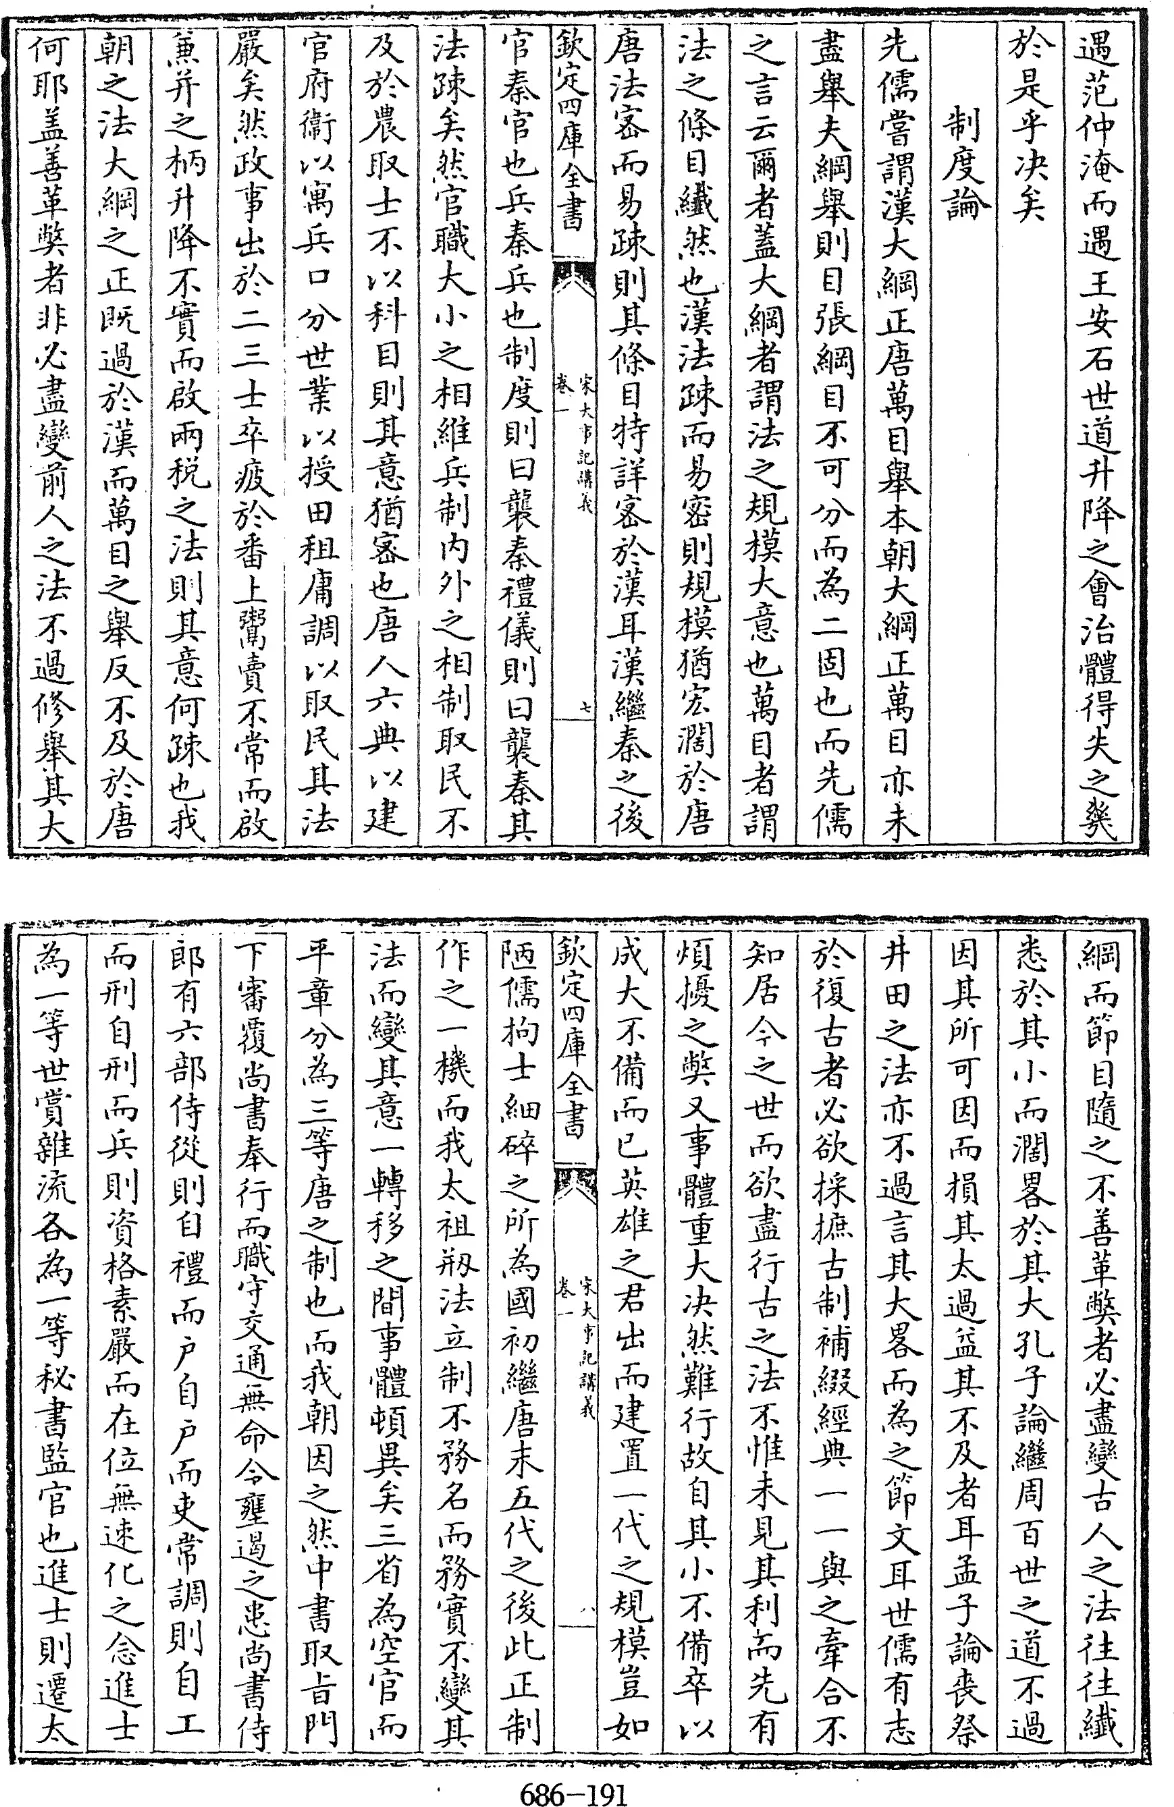 遇范仲淹而遇王安石世道升降之會治體得失之幾
於是乎决矣
制度論
先儒嘗謂漢大綱正唐萬目舉本朝大綱正萬目亦未
盡舉夫綱舉則目張綱目不可分而為二固也而先儒
之言云爾者葢大綱者謂法之規模大意也萬目者謂
法之條目纎然也漢法踈而易宻則規模猶宏濶於唐
唐法宻而易踈則其條目特詳宻於漢耳漢繼秦之後
欽定四庫全書
宋大事記講義
卷一
七
官秦官也兵秦兵也制度則曰襲秦禮儀則曰襲秦其
法踈矣然官職大小之相維兵制内外之相制取民不
及於農取士不以科目則其意猶宻也唐人六典以建
官府衞以寓兵口分世業以授田租庸調以取民其法
嚴矣然政事出於二三士卒疲於番上鬻賣不常而啟
兼并之柄升降不實而啟兩税之法則其意何踈也我
朝之法大綱之正既過於漢而萬目之舉反不及於唐
何耶盖善革弊者非必盡變前人之法不過修舉其大
綱而節目隨之不善革弊者必盡變古人之法往往纎
悉於其小而濶畧於其大孔子論繼周百世之道不過
因其所可因而損其太過益其不及者耳孟子論喪祭
井田之法亦不過言其大畧而為之節文耳世儒有志
於復古者必欲採摭古制補綴經典一一與之牽合不
知居今之世而欲盡行古之法不惟未見其利而先有
煩擾之弊又事體重大决然難行故自其小不備卒以
成大不備而已英雄之君出而建置一代之規模豈如
欽定四庫全書
宋大事記講義
卷一
八
陋儒拘士細碎之所為國初繼唐末五代之後此正制
作之一機而我太祖剏法立制不務名而務實不變其
法而變其意一轉移之間事體頓異矣三省為空官而
平章分為三等唐之制也而我朝因之然中書取㫖門
下審覆尚書奉行而職守交通無命令壅遏之患尚書侍
郎有六部侍從則自禮而户自户而吏常調則自工
而刑自刑而兵則資格素嚴而在位無速化之念進士
為一等世賞雜流各為一等秘書監官也進士則遷太
686-191